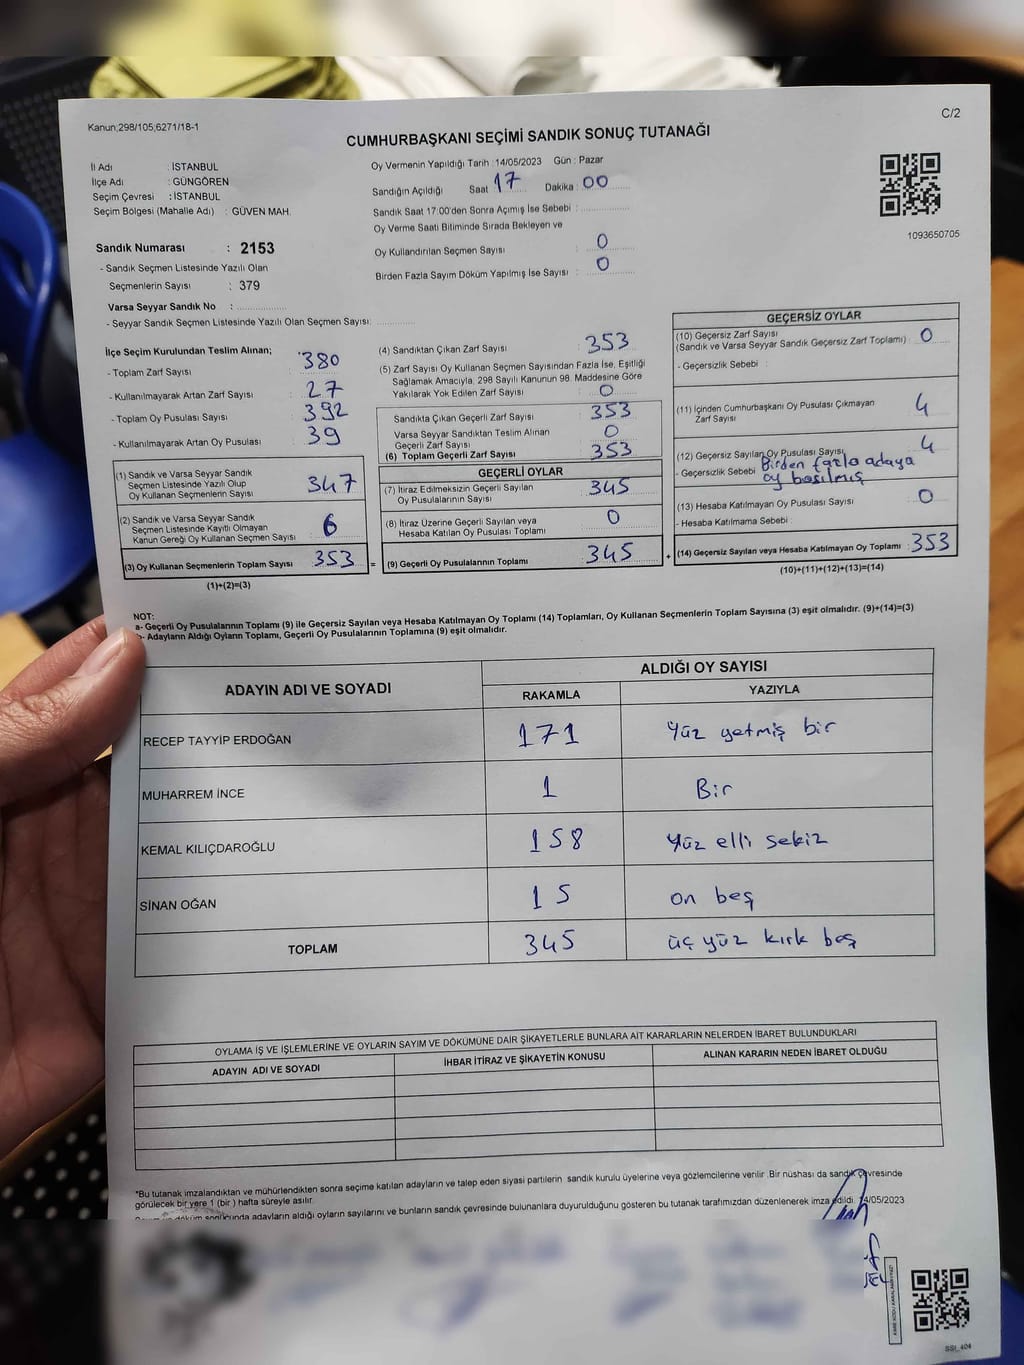 Kanun;298/105;6271/18-1
C/2
CUMHURBAŞKANI SEÇİMİ SANDIK SONUÇ TUTANAĞI
İl Adı : İSTANBUL
İlçe Adı : GÜNGÖREN
Seçim Çevresi : İSTANBUL
Seçim Bölgesi (Mahalle Adı) : GÜVEN MAH.
Oy Vermenin Yapıldığı Tarih :14/05/2023 Gün : Pazar
Sandığın Açıldığı Saat 17 Dakika : 00
Sandık Saat 17:00'den Sonra Açımış İse Sebebi :
Oy Verme Saati Bitiminde Sırada Bekleyen ve
Oy Kullandırılan Seçmen Sayısı : 0
Birden Fazla Sayım Döküm Yapılmış İse Sayısı : 0
1093650705
Sandık Numarası : 2153
- Sandık Seçmen Listesinde Yazılı Olan
Seçmenlerin Sayısı : 379
Varsa Seyyar Sandık No :
- Seyyar Sandık Seçmen Listesinde Yazılı Olan Seçmen Sayısı:
İlçe Seçim Kurulundan Teslim Alınan;
- Toplam Zarf Sayısı : 380
- Kullanılmayarak Artan Zarf Sayısı : 27
- Toplam Oy Pusulası Sayısı : 392
- Kullanılmayarak Artan Oy Pusulası : 39
(1) Sandık ve Varsa Seyyar Sandık
Seçmen Listesinde Yazılı Olup
Oy Kullanan Seçmenlerin Sayısı : 347
(2) Sandık ve Varsa Seyyar Sandık
Seçmen Listesinde Kayıtlı Olmayan
Kanun Gereği Oy Kullanan Seçmen Sayısı : 6
(3) Oy Kullanan Seçmenlerin Toplam Sayısı : 353 =
(1)+(2)=(3)
(4) Sandıktan Çıkan Zarf Sayısı : 353
(5) Zarf Sayısı Oy Kullanan Seçmen Sayısından Fazla İse, Eşitliği
Sağlamak Amacıyla, 298 Sayılı Kanunun 98. Maddesine Göre
Yakılarak Yok Edilen Zarf Sayısı : 0
Sandıkta Çıkan Geçerli Zarf Sayısı : 353
Varsa Seyyar Sandıktan Teslim Alınan
Geçerli Zarf Sayısı : 0
(6) Toplam Geçerli Zarf Sayısı : 353
GEÇERLİ OYLAR
(7) İtiraz Edilmeksizin Geçerli Sayılan
Oy Pusulalarının Sayısı : 345
(8) İtiraz Üzerine Geçerli Sayılan veya
Hesaba Katılan Oy Pusulası Toplamı : 0
(9) Geçerli Oy Pusulalarının Toplamı : 345 +
GEÇERSİZ OYLAR
(10) Geçersiz Zarf Sayısı
(Sandık ve Varsa Seyyar Sandık Geçersiz Zarf Toplamı) : 0
- Geçersizlik Sebebi :
(11) İçinden Cumhurbaşkanı Oy Pusulası Çıkmayan
Zarf Sayısı : 4
(12) Geçersiz Sayılan Oy Pusulası Sayısı : 4
- Geçersizlik Sebebi : Birden fazla adaya
oy basılmış
(13) Hesaba Katılmayan Oy Pusulası Sayısı : 0
- Hesaba Katılmama Sebebi :
(14) Geçersiz Sayılan veya Hesaba Katılmayan Oy Toplamı : 353
(10)+(11)+(12)+(13)=(14)
NOT:
a- Geçerli Oy Pusulalarının Toplamı (9) ile Geçersiz Sayılan veya Hesaba Katılmayan Oy Toplamı (14) Toplamları, Oy Kullanan Seçmenlerin Toplam Sayısına (3) eşit olmalıdır. (9)+(14)=(3)
- Adayların Aldığı Oyların Toplamı, Geçerli Oy Pusulalarının Toplamına (9) eşit olmalıdır.
ADAYIN ADI VE SOYADI
ALDIĞI OY SAYISI
RAKAMLA YAZIYLA
RECEP TAYYİP ERDOĞAN 171 Yüz yetmiş bir
MUHARREM İNCE 1 Bir
KEMAL KILIÇDAROĞLU 158 Yüz elli sekiz
SİNAN OĞAN 15 on beş
TOPLAM 345 üç yüz kırk beş
OYLAMA İŞ VE İŞLEMLERİNE VE OYLARIN SAYIM VE DÖKÜMÜNE DAİR ŞİKAYETLERLE BUNLARA AİT KARARLARIN NELERDEN İBARET BULUNDUKLARI
ADAYIN ADI VE SOYADI İHBAR İTİRAZ VE ŞİKAYETİN KONUSU ALINAN KARARIN NEDEN İBARET OLDUĞU
*Bu tutanak imzalandıktan ve mühürlendikten sonra seçime katılan adayların ve talep eden siyasi partilerin sandık kurulu üyelerine veya gözlemcilerine verilir .Bir nüshası da sandık çevresinde
görülecek bir yere 1 (bir ) hafta süreyle asılır.
adayların aldığı oyların sayılarını ve bunların sandık çevresinde bulunanlara duyurulduğunu gösteren bu tutanak tarafımızdan düzenlenerek imza edildi. 14/05/2023